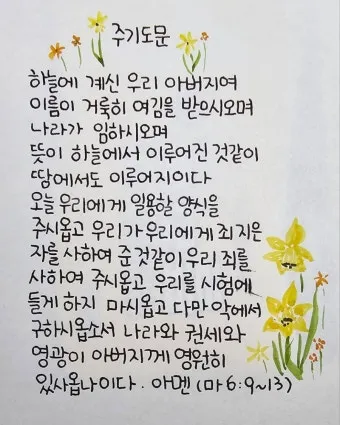 주기도문
하늘에 계신 우리 아버지여
이름이 거룩히 여김을 받으시오며
나라가 임하시오며
뜻이 하늘에서 이루어진 것같이
땅에서도 이루어지이다
오늘 우리에게 일용할 양식을
주시옵고 우리가 우리에게 죄 지은
자를 사하여 준 것같이 우리 죄를
사하여 주시옵고 우리를 시험에
들게 하지 마시옵고 다만 악에서
구하시옵소서 나라와 권세와
영광이 아버지께 영원히
있사옵나이다. 아멘 (마 6:9~13)